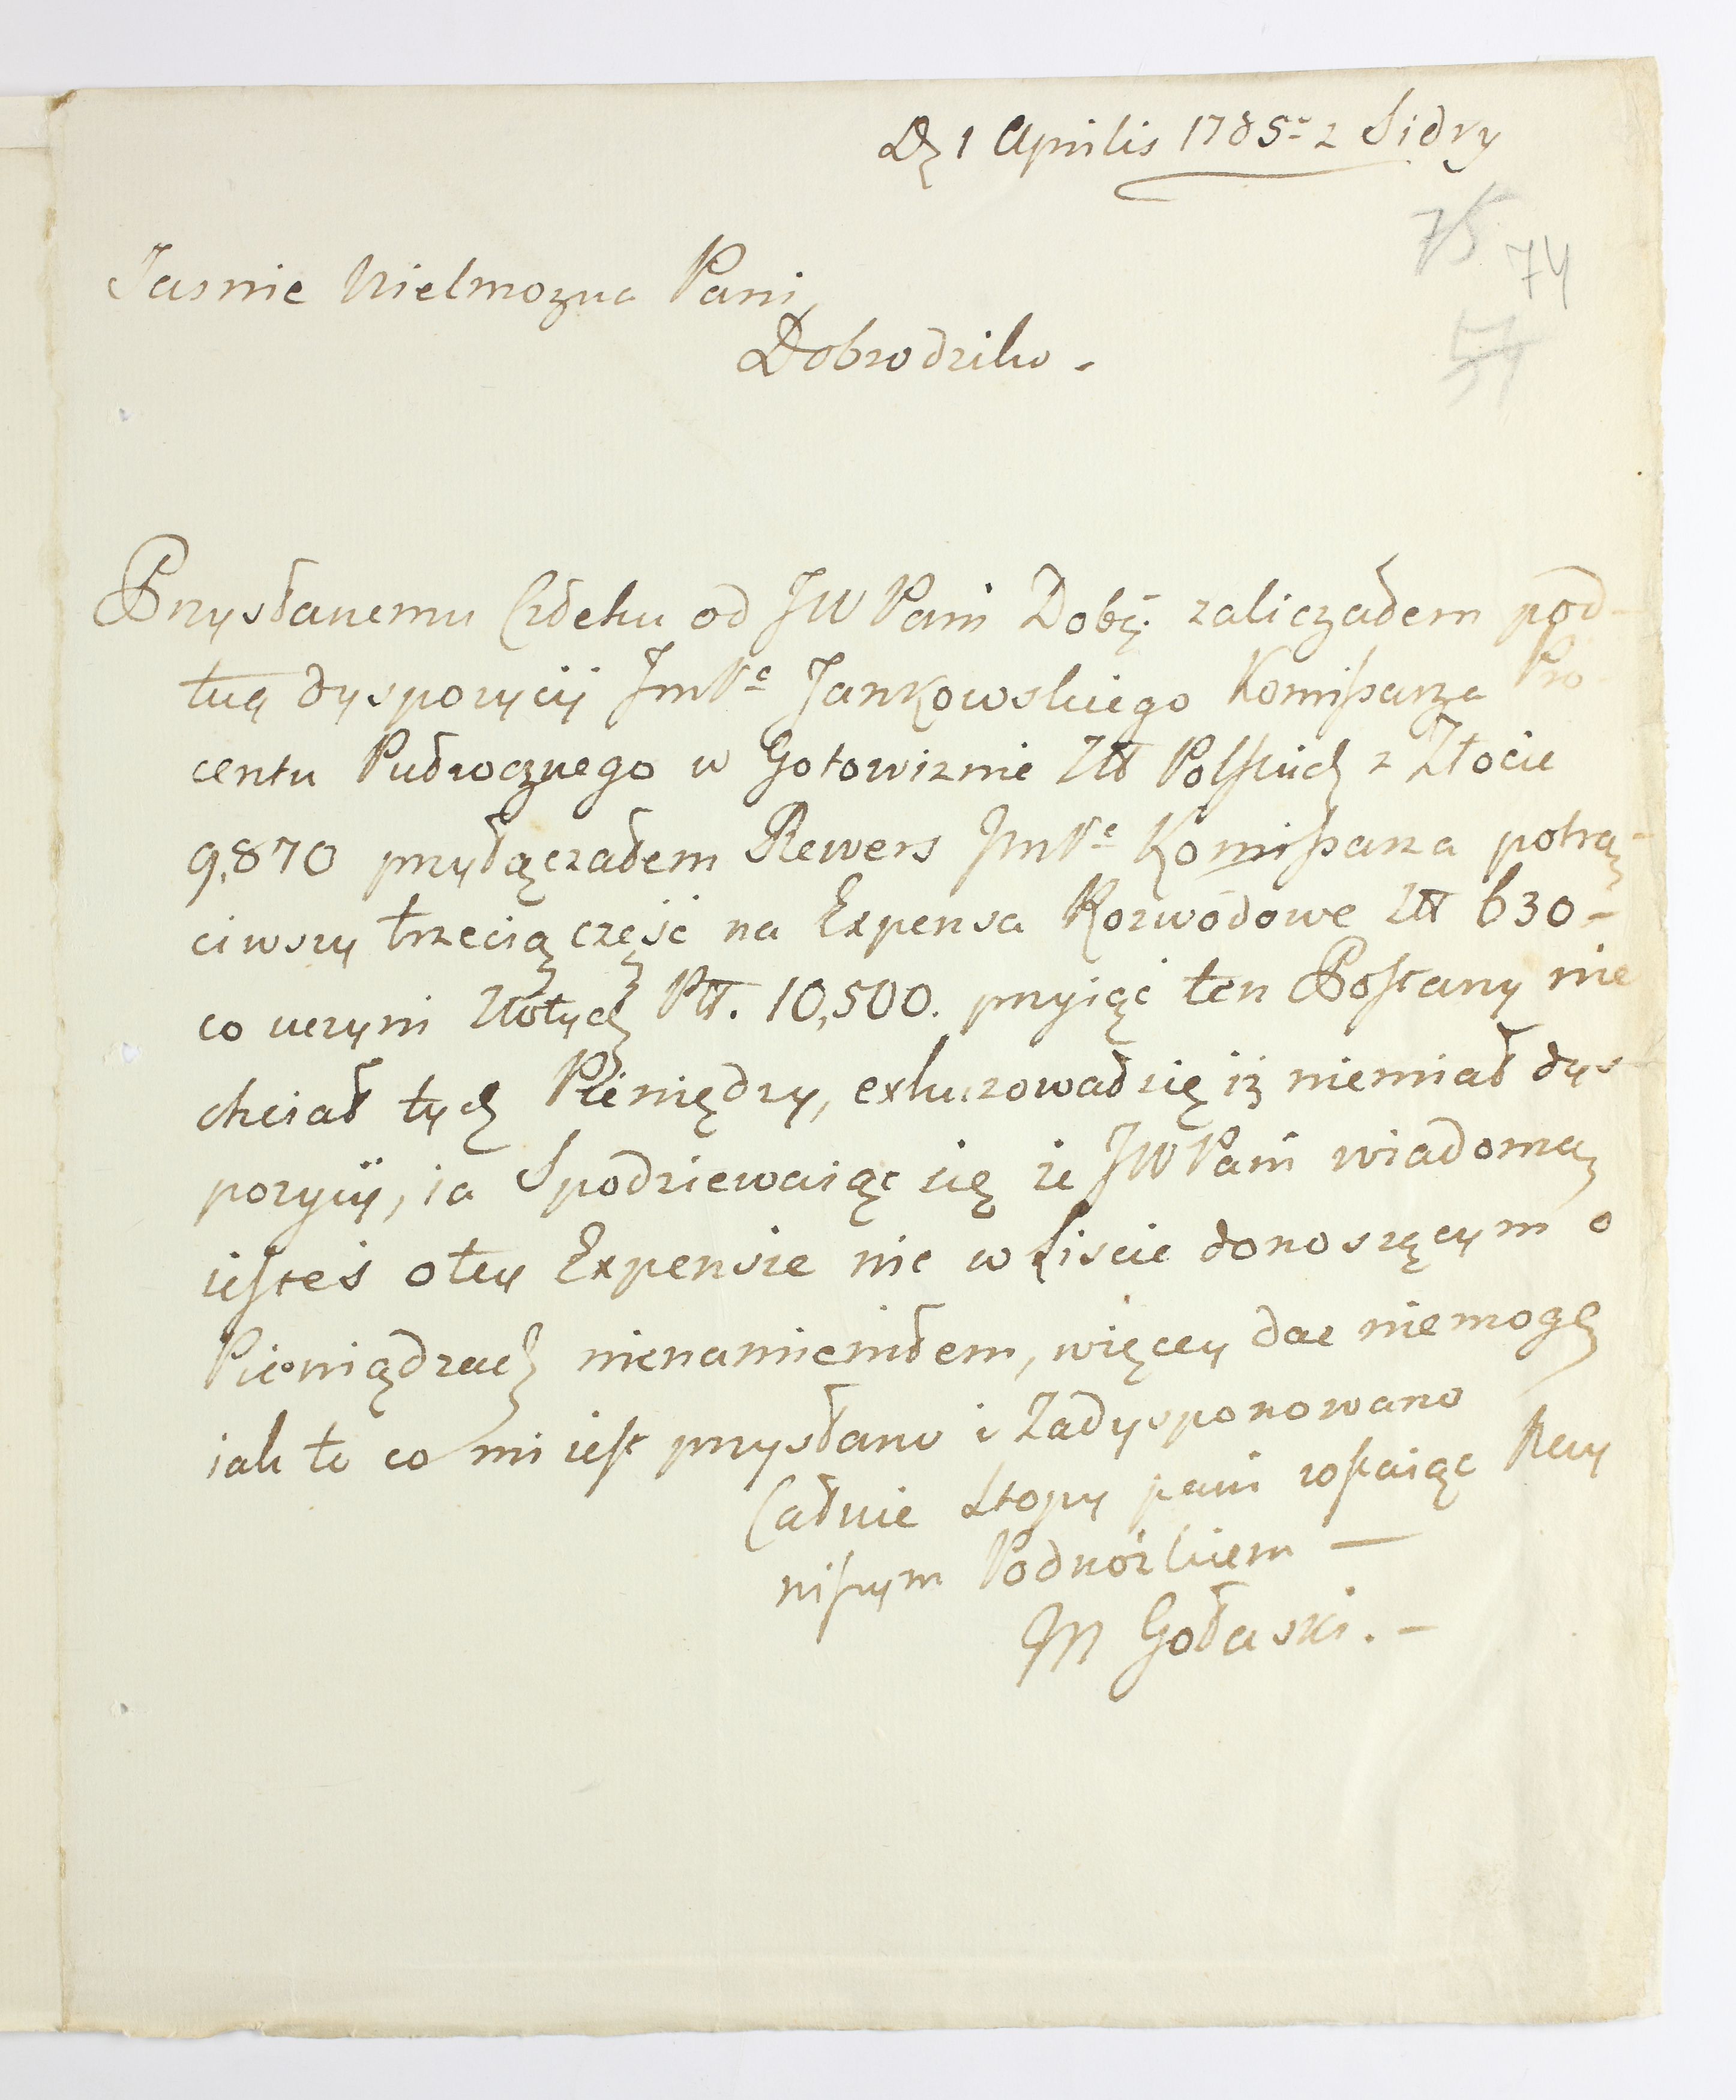 D. 1 Aprilis 1785 z Sidry
75 74
57
Jasnie Wielmozna Pani
Dobrodziko.
Przysłanemu Człeku od JW Pani Dobę: zaliczałem pod-
ług dyspozycij JmPa Jankowskiego Komissarza Pro-
centu Pułrocznego w Gotowiznie Złł Polskich z Złocie
9,870 przyłączałem Rewers JmPa Komissarza potrą-
ciwszy trzecią część na Expensa Rozwodowe Złł 630-
co uczyni Złotych Płł. 10,500. przyiąć ten Posłany nie
chciał tych Pieniędzy, exkuzował się iż niemiał dys-
pozycij, ia Spodziewaiąc się że JW Pani wiadomą
iesteś o tey Expensie nic w Liscie donoszącym o
Pieniądzach nienamieniłem, więcey dac niemogę
iak to co mi iest przysłano i Zadysponowano
Całuie Stopy pani zostaiąc Nay
niszym Podnóżkiem —
M Gołaski. -